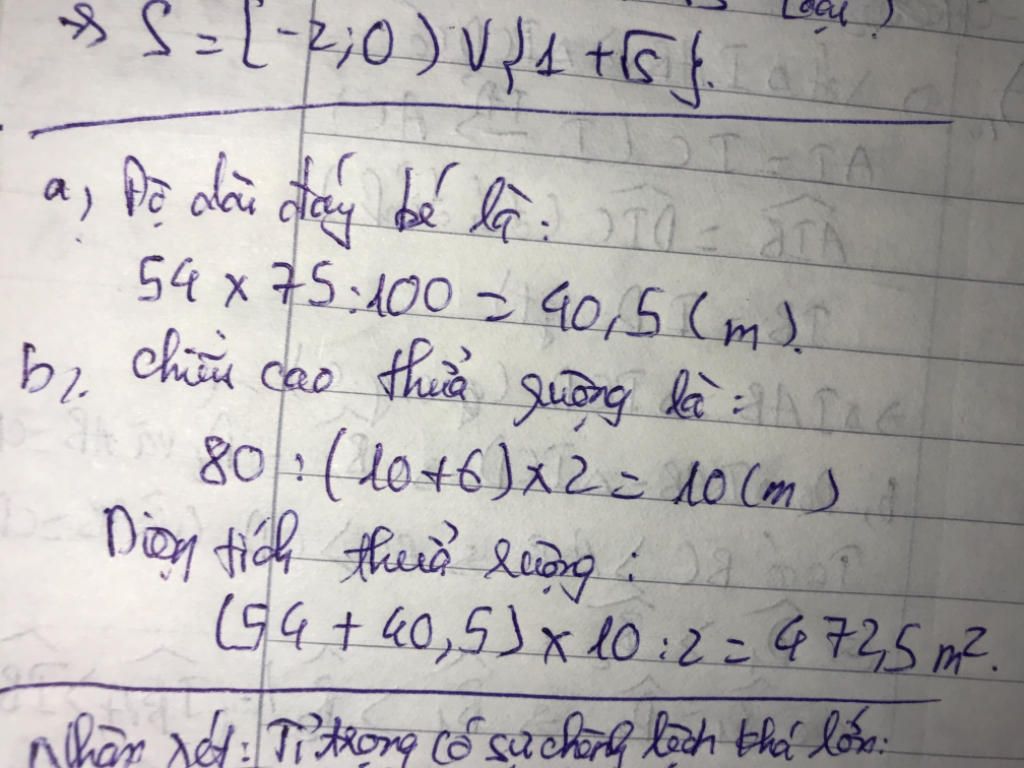 (loại)
=> S = [-2;0) ∪ {1 + √5}.
a, Độ dài đáy bé là:
54 x 75:100 = 40,5 (m).
b, chiều cao thửa ruộng là:
80 : (10+6) x 2 = 10 (m)
Diện tích thửa ruộng:
(54 + 40,5) x 10 : 2 = 472,5 m².
Nhận xét: Tỉ trọng có sự chênh lệch khá lớn: